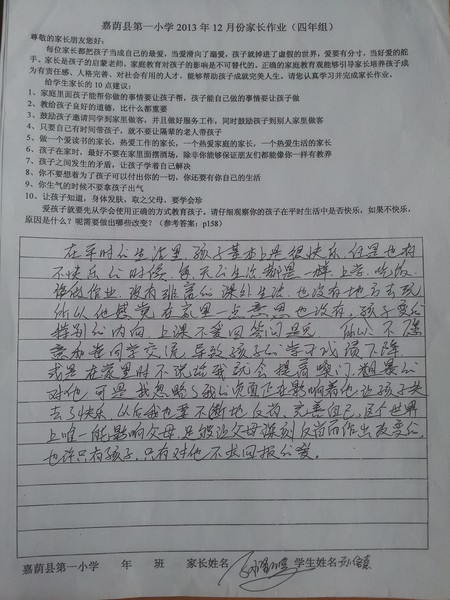 嘉荫县第一小学 2013 年 12 月份家长作业（四年组）
尊敬的家长朋友您好：
每位家长都把孩子当成自己的最爱，当爱滑向了溺爱，孩子就掉进了虚假的世界，爱要有分寸，当好爱的舵
手。家长是孩子的启蒙老师，家庭教育对孩子的影响是不可替代的。正确的家庭教育观能够引导家长培养孩子成
为有责任感、人格完善、对社会有用的人才，能够帮助孩子成就完美人生。请您认真学习并完成家长作业。
给学生家长的 10 点建议：
1、家庭里面孩子能帮你做的事情要让孩子帮，孩子能自己做的事情要让孩子做
2、教给孩子良好的道德，比什么都重要
3、鼓励孩子邀请同学到家里做客，并且做好服务工作，同时鼓励孩子到别人家里做客
4、只要自己有时间带孩子，就不要让隔辈的老人带孩子
5、做一个爱读书的家长，热爱工作的家长，一个热爱家庭的家长，一个热爱生活的家长
6、孩子在家时，最好不要在家里面摆酒场，除非你能够保证朋友们都能像你一样有教养
7、孩子之间发生的矛盾，让孩子学着自己解决
8、你不要想着为了孩子可以付出你的一切，你还要有你自己的生活
9、你生气的时候不要拿孩子出气
10、让孩子知道，身体发肤，取之父母，要学会珍
爱孩子就要先从学会使用正确的方式教育孩子。请仔细观察你的孩子在平时生活中是否快乐，如果不快乐，
原因是什么？呢需要做出哪些改变？（参考答案：p158）
在平时的生活里，孩子基本上是很快乐，但是也有
不快乐的时候，每天的生活都是一样上学、吃饭、
作业，没有非富的课外生活，也没有地方去玩
所以他感觉在家里一点意思也没有，孩子变的
特别的内向，上课不爱回答问题，所以不愿
意和同学交流，导致孩子的学习成绩下降
我是在家里时不说话我就会提高嗓门，粗暴的
对他，可是我忽略了我的负面正在影响着他，让孩子失
去了快乐，以后我也要不断地反省、完善自己，这个世界
上唯一能影响父母，是被让父母深刻反省而作出改变的，
也许只有孩子，只有对他不求回报的爱。
嘉荫县第一小学 年 班 家长姓名 学生姓名